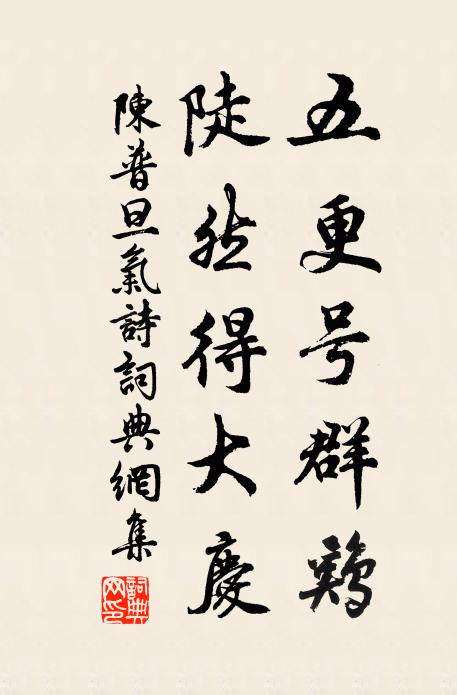 五更号群鷄
陡然得大慶
陳普旦氣詩詞典網集
詞典網印